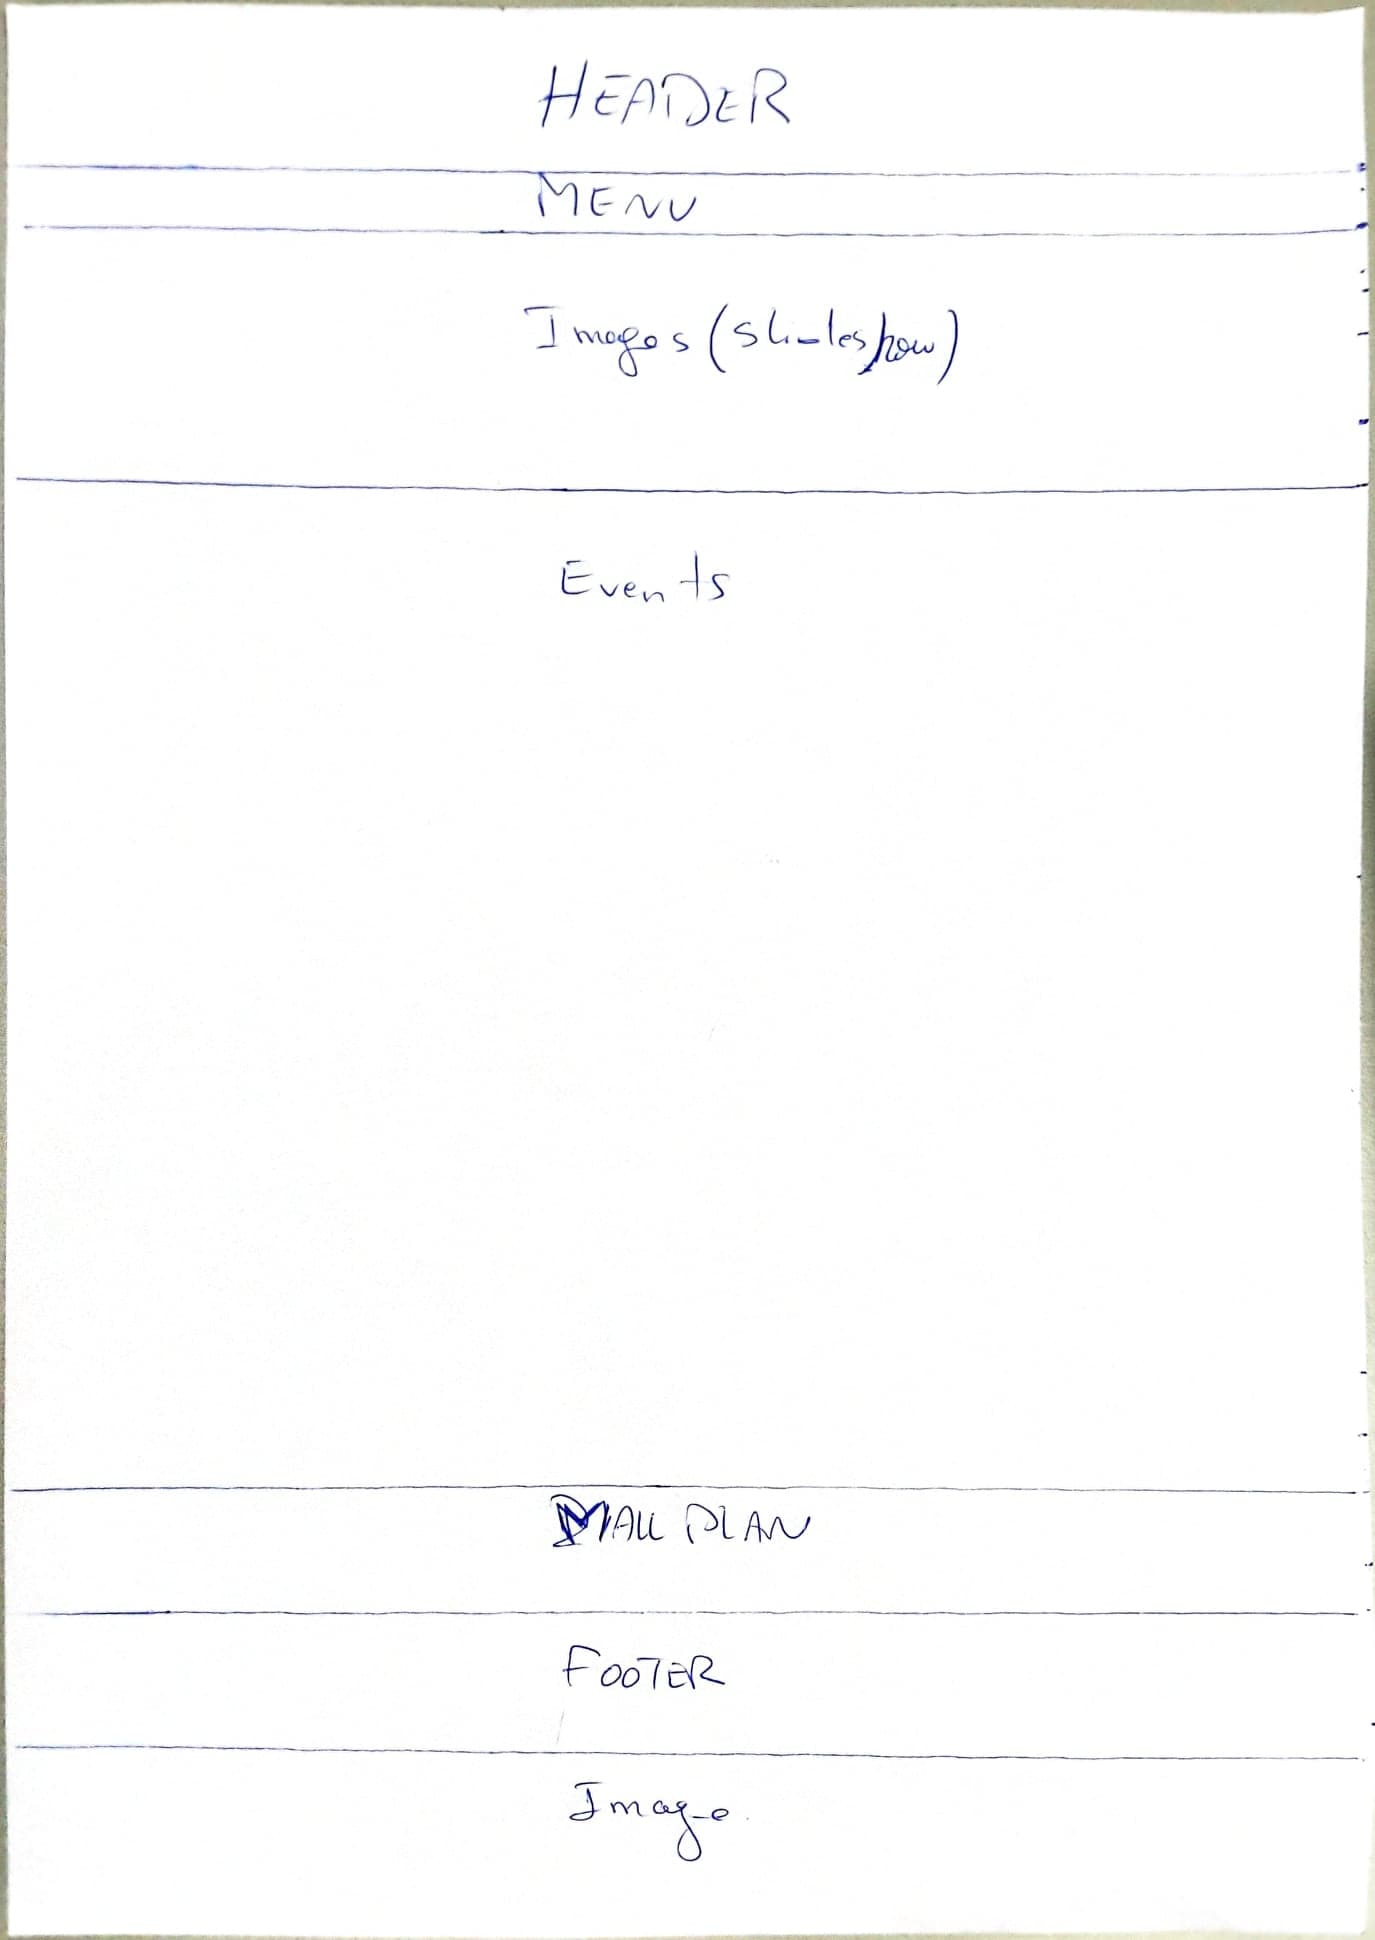 HEADER
MENU
Images (Slideshow)
Events
MALL PLAN
FOOTER
Image